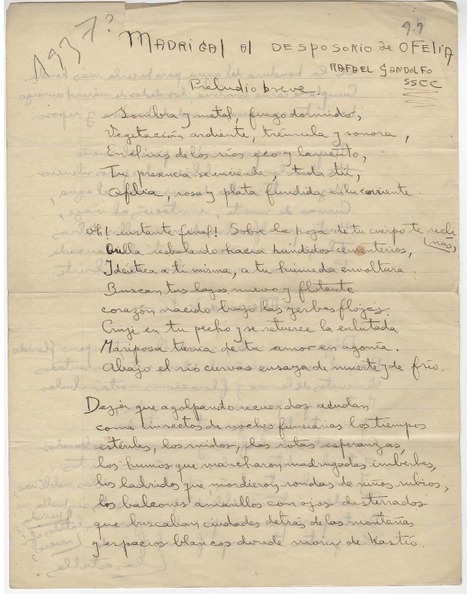 1937?
99
MADRIGAL al DESPOSORIO de OFELIA
RAFAEL GANDOLFO
SSCC
Preludio breve.
Sombra y metal, fuego dormidos,
Vegetación ardiente, trémula y sonora,
En clinas de los ríos eco y lamento,
Tu presencia se enciende,
Ofelia, rosa y plata fundida en la corriente
Oh! instante final! Sobre la hoja de tu cuerpo te recli
[nas,
resbalando hacia hundidos cementerios,
Idéntica a ti misma, a tu húmeda envoltura.
Buscan tus lagos nuevo y flotante
corazón nacido bajo las yerbas flojas.
Cruje en tu pecho y se retuerce la enlutada
Mariposa tierna de tu amor en agonía.
Abajo el río curvas ensaya de muerte y de frío.
Dejar que agolpando recuerdos acudan
como insectos de noches funerarias los tiempos
estériles, los ruidos, las rotas esperanzas,
los humos que mancharon madrugadas imberbes,
los ladridos que mordieron rondas de niños rubios,
los balcones amarillos con ojos desterrados
que buscaban ciudades detrás de las montañas
y espacios blancos donde morir de hastío.